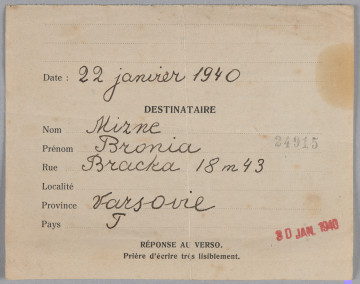 Date : 22 janvier 1940
DESTINATAIRE
Nom Mizne
Prénom Bronia
24915
Rue Bracka 18 m 43
Localité
Province Varsovie
Pays
30 JAN. 1940
RÉPONSE AU VERSO.
Prière d'écrire très lisiblement.